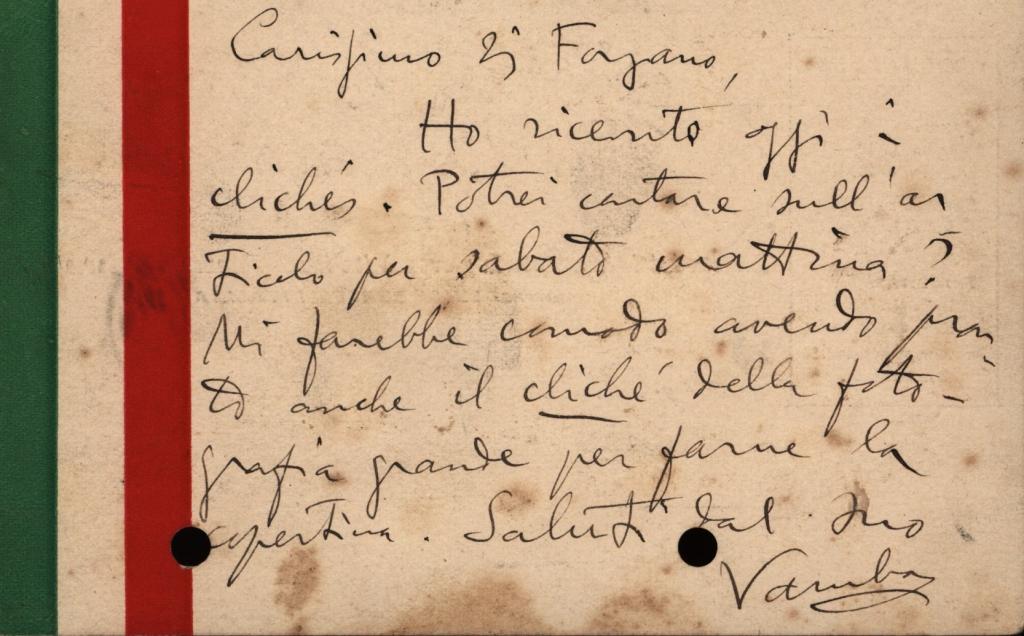 Carissimo Sig Forzano,
Ho ricevuto oggi i
clichés. Potrei contare sull'ar
ticolo per sabato mattina?
Mi farebbe comodo avendo pron
to anche il cliché della foto-
grafia grande per farne la
copertina. Saluti dal suo
Vamba